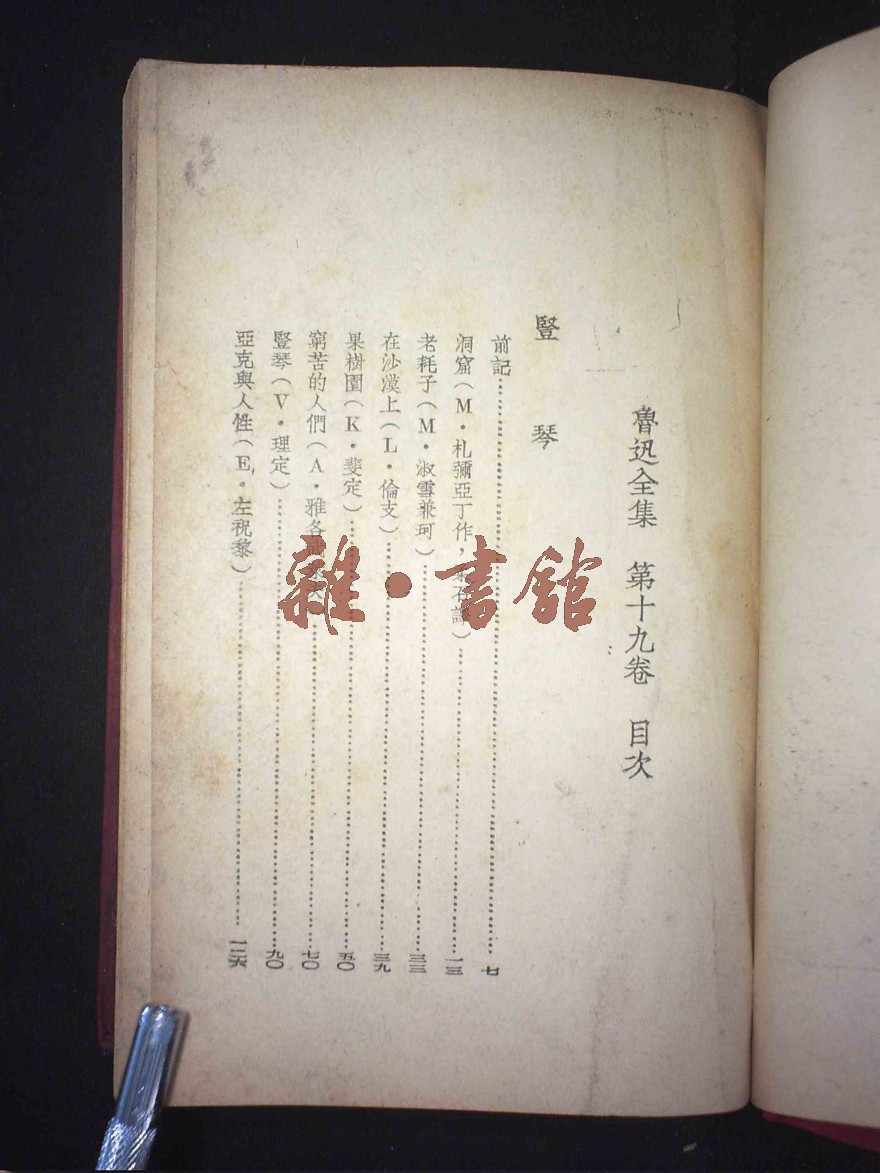 魯迅全集 第十九卷 目次
豎琴
前記……七
洞窟(M·札彌亞丁作,……一三
老耗子(M·淑雪兼珂)……三三
在沙漠上(L·倫支)……三九
果樹園(K·斐定)……五〇
窮苦的人們(A·雅各……七〇
豎琴(V·理定)……九〇
亞克與人性(E。左祝黎)……一二六
雜·書館